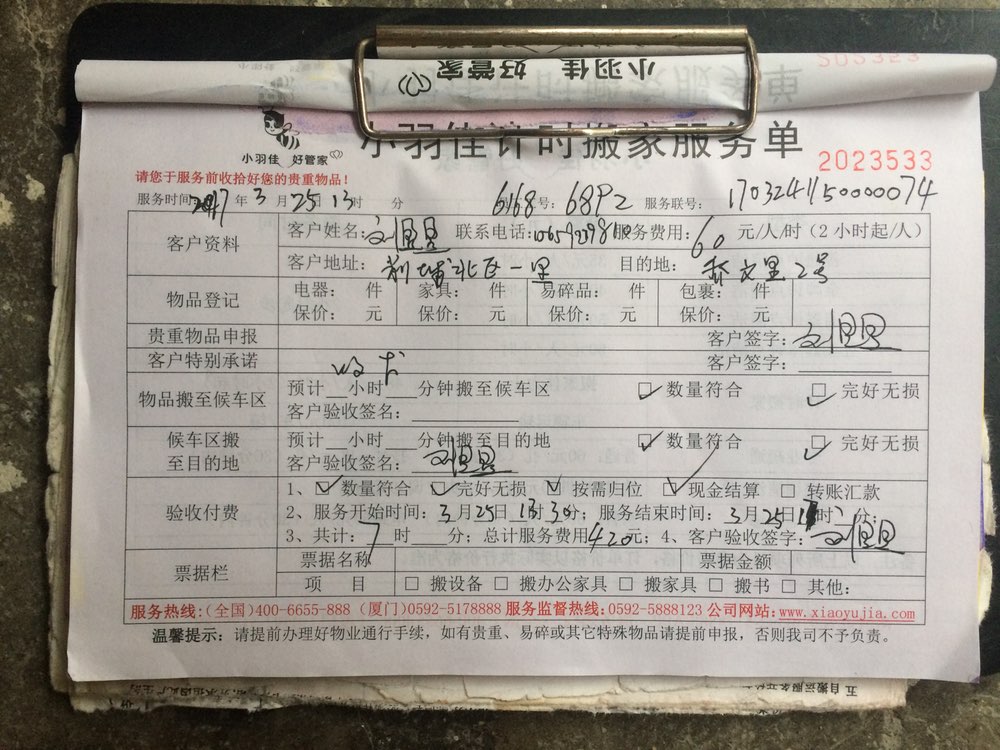 小羽佳 好管家
小羽佳计时搬家服务单
小羽佳 好管家
2023533
请您于服务前收拾好您的贵重物品！
服务时间 2017年3月25日13时 分 6168 号：68P2 服务联号：1703241150000074
客户资料 客户姓名： 联系电话： 服务费用：60元/人/时（2小时起/人）
客户地址： 北区一里 目的地： 文里2号
物品登记 电器： 件 家具： 件 易碎品： 件 包裹： 件
保价： 元 保价： 元 保价： 元 保价： 元
贵重物品申报 客户签字：
客户特别承诺 客户签字：
物品搬至候车区 预计__小时__分钟搬至候车区 ☑ 数量符合 ☑ 完好无损
客户验收签名：
候车区搬至目的地 预计__小时__分钟搬至目的地 ☑ 数量符合 ☑ 完好无损
客户验收签名：
验收付费 1、☑ 数量符合 ☑ 完好无损 ☑ 按需归位 ☑ 现金结算 □ 转账汇款
2、服务开始时间：3月25日 时30分；服务结束时间：3月25日 时 分；
3、共计：7时 分；总计服务费用420元；4、客户验收签字：
票据栏 票据名称 票据金额
项 目 □ 搬设备 □ 搬办公家具 □ 搬家具 □ 搬书 □ 其他：
服务热线：（全国）400-6655-888（厦门）0592-5178888 服务监督热线：0592-5888123 公司网站：www.xiaoyujia.com
温馨提示：请提前办理好物业通行手续，如有贵重、易碎或其它特殊物品请提前申报，否则我司不予负责。